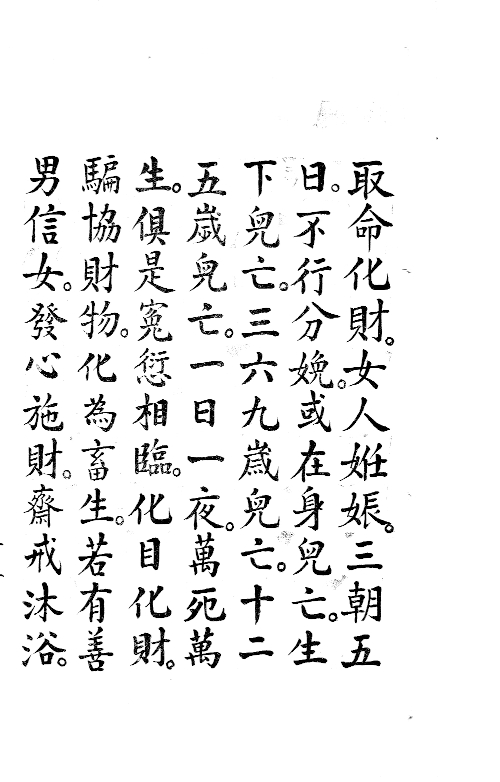 取命化財。女人姙娠。三朝五
日。不行分娩。或在身兒亡。生
下兒亡。三六九歲兒亡。十二
五歲兒亡。一日一夜。萬死萬
生。俱是冤愆相臨。化目化財。
騙協財物。化為畜生。若有善
男信女。發心施財。齋戒沐浴。